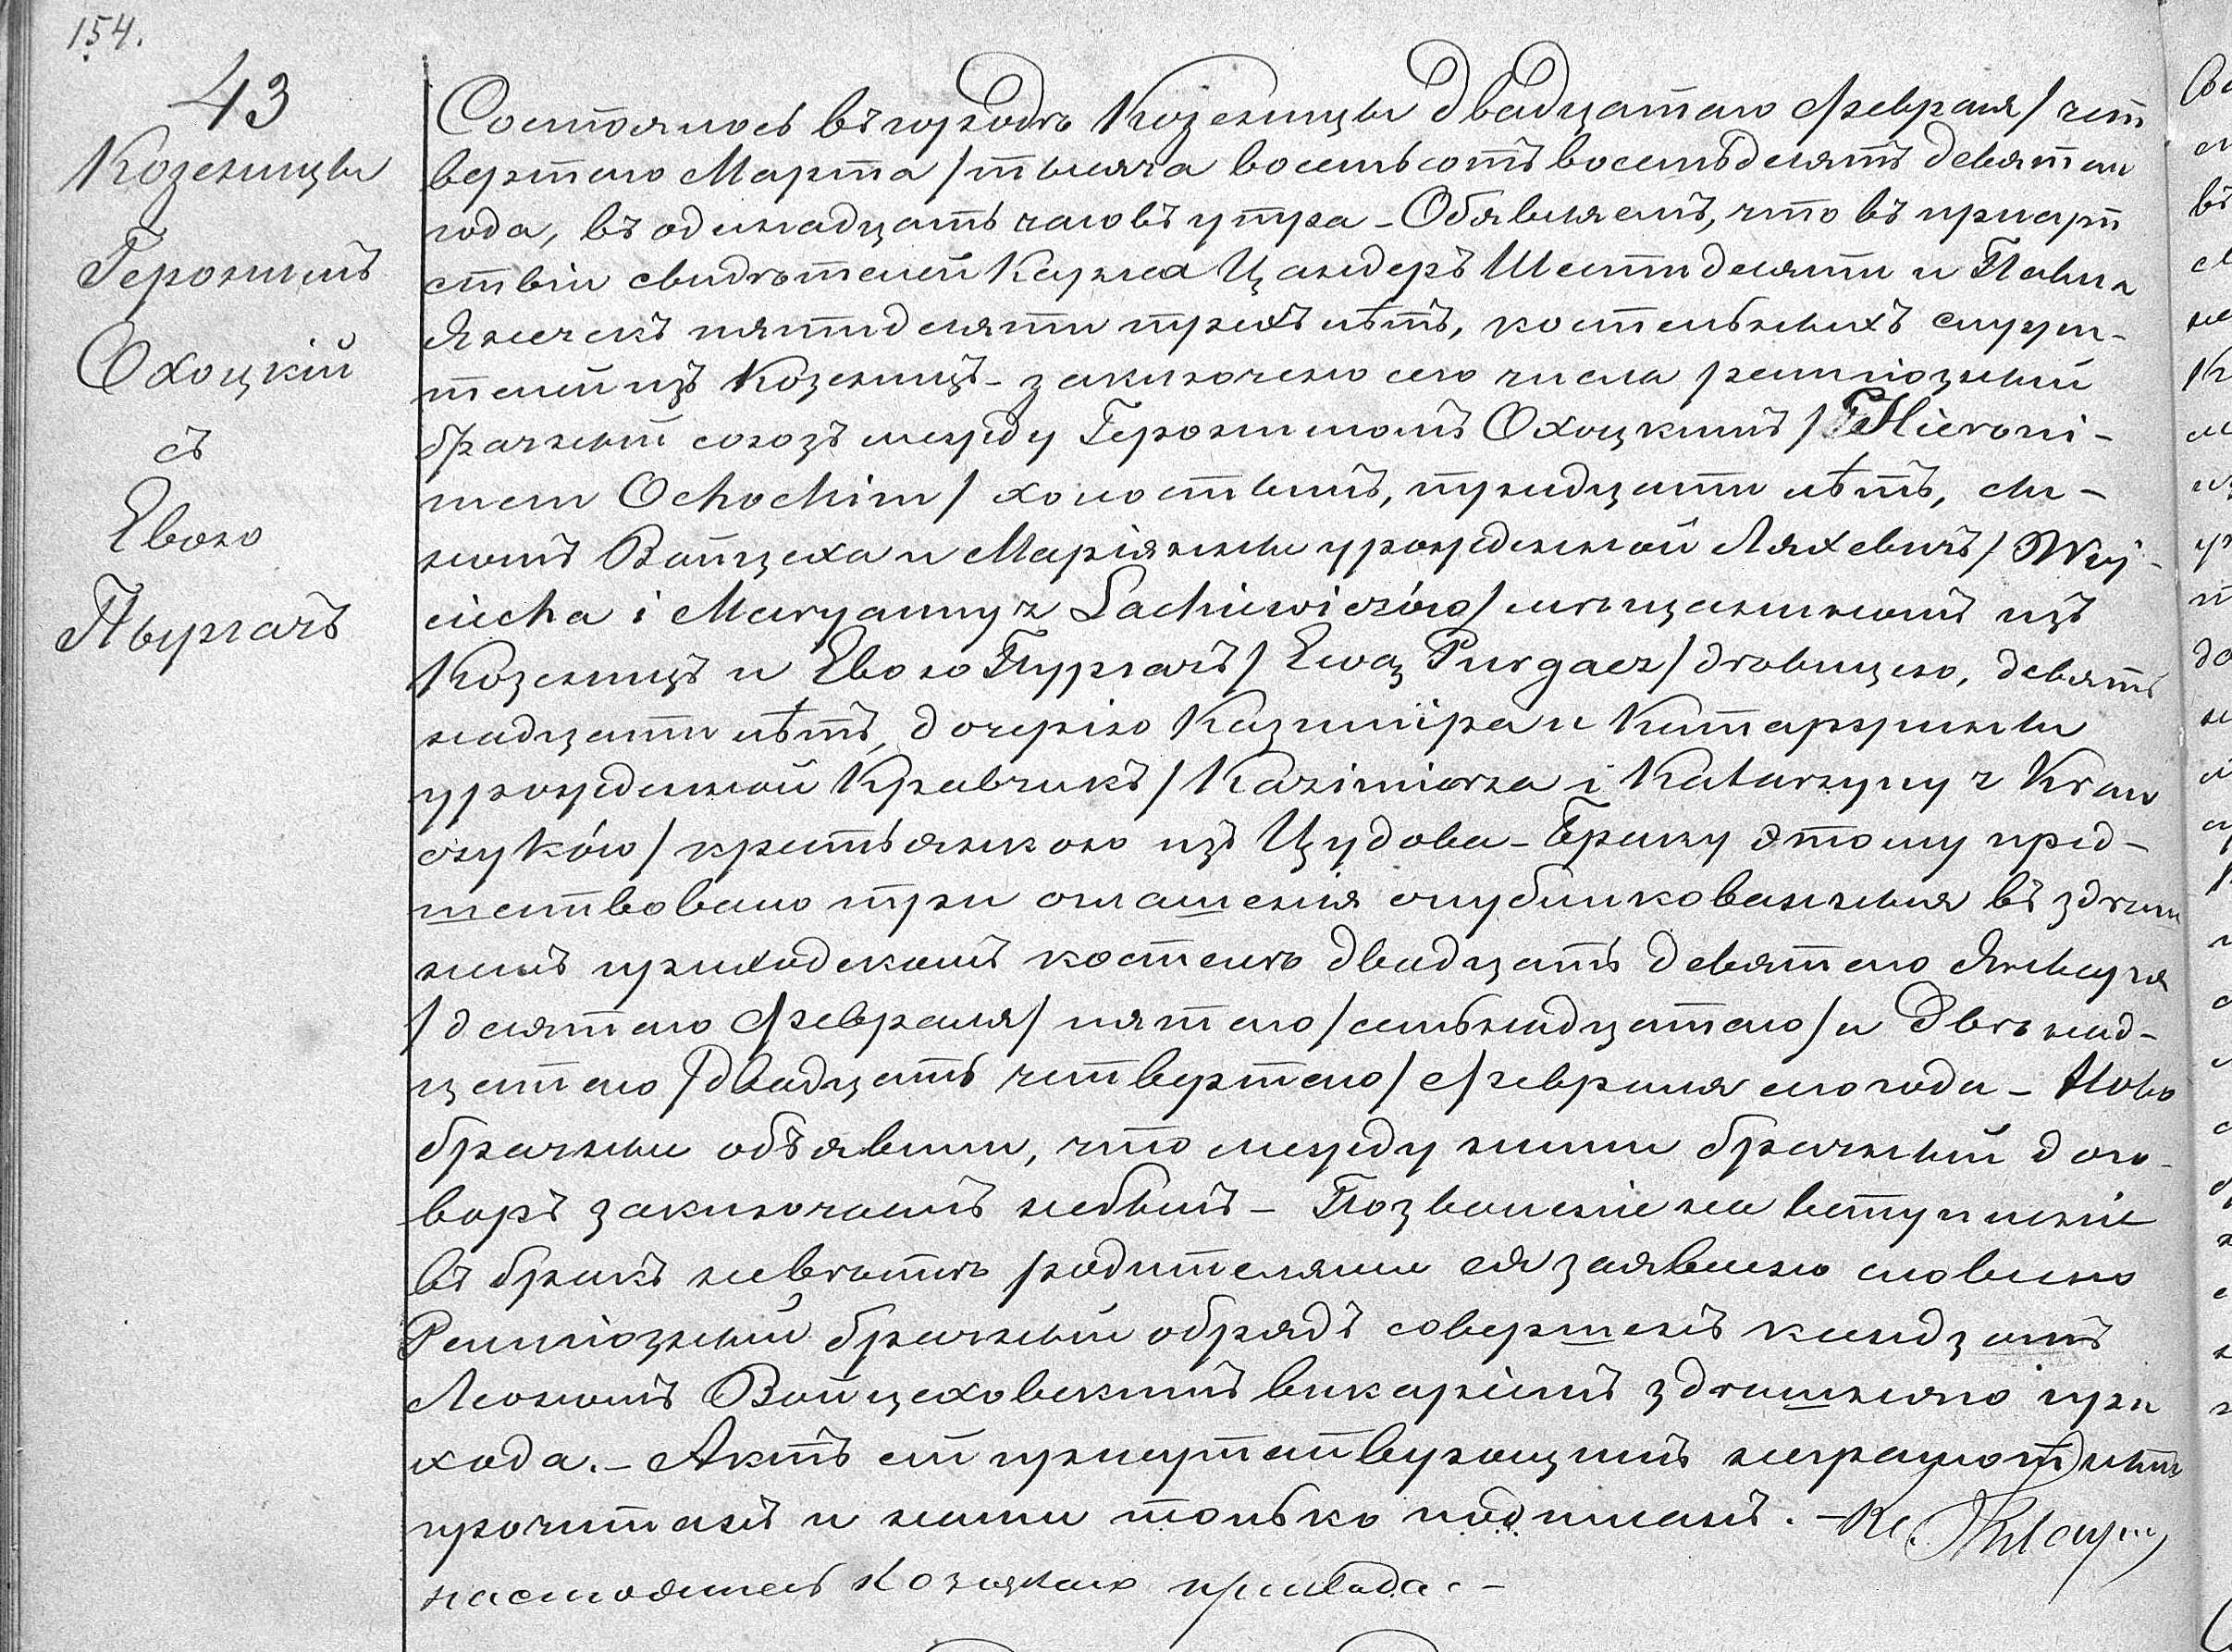 154.
43
Козеницы
Геронимъ
Охоцкій
съ
Евою
Пыргачъ
Состоялось въ городѣ Козеницы двадцатаго Февраля/чет
вертаго Марта/тысяча восемьсотъ восемьдесятъ девятаго
года, въ одинадцать часовъ утра – Объявляемъ, что въ присут
ствіи свидѣтелей Карла Цандеръ Шестидесяти и Павла
Янечекъ пятидесяти трехъ лѣтъ, костельныхъ служи-
телей изъ Козеницъ – заключено сего числа религіозный
брачный союзъ между Геронимомъ Охоцкимъ/Hieroni-
mem Ochockim/холостымъ, тридцати лѣтъ, сы-
номъ Войцеха и Маріянны урожденной Ляхевичъ/Woj-
ciecha i Maryanny z Lachiewiczów/мѣщаниномъ изъ
Козеницъ и Евою Пургачъ/Ewą Purgacz/дѣвицею, девят
надцати лѣтъ, дочерію Казиміра и Катаржины
урожденной Кравчикъ/Kazimierza i Katarzyny z Kraw
czyków/крестьянкою изъ Цудова – Браку этому пред-
шествовало три оглашенія опубликованныя въ здѣш
нымъ приходскомъ костелѣ двадцать девятаго Января
/десятаго Февраля/пятаго/семьнадцатаго/и двѣнад-
цатаго/двадцать четвертаго/Февраля сего года – Ново
брачные объявили, что между ними брачный дого-
воръ заключаемъ небылъ – Позволеніе на вступленіе
въ бракъ невѣстѣ родителями ея заявлено словесно
Религіозный брачный обрядъ совершенъ ксендзомъ
Леономъ Войцеховскимъ викаріемъ здѣшняго при
хода. – Актъ сей присутствующимъ неграмотнымъ
прочитанъ и нами только подписанъ. – Кс.
настоятель Козеницкаго прихода. –